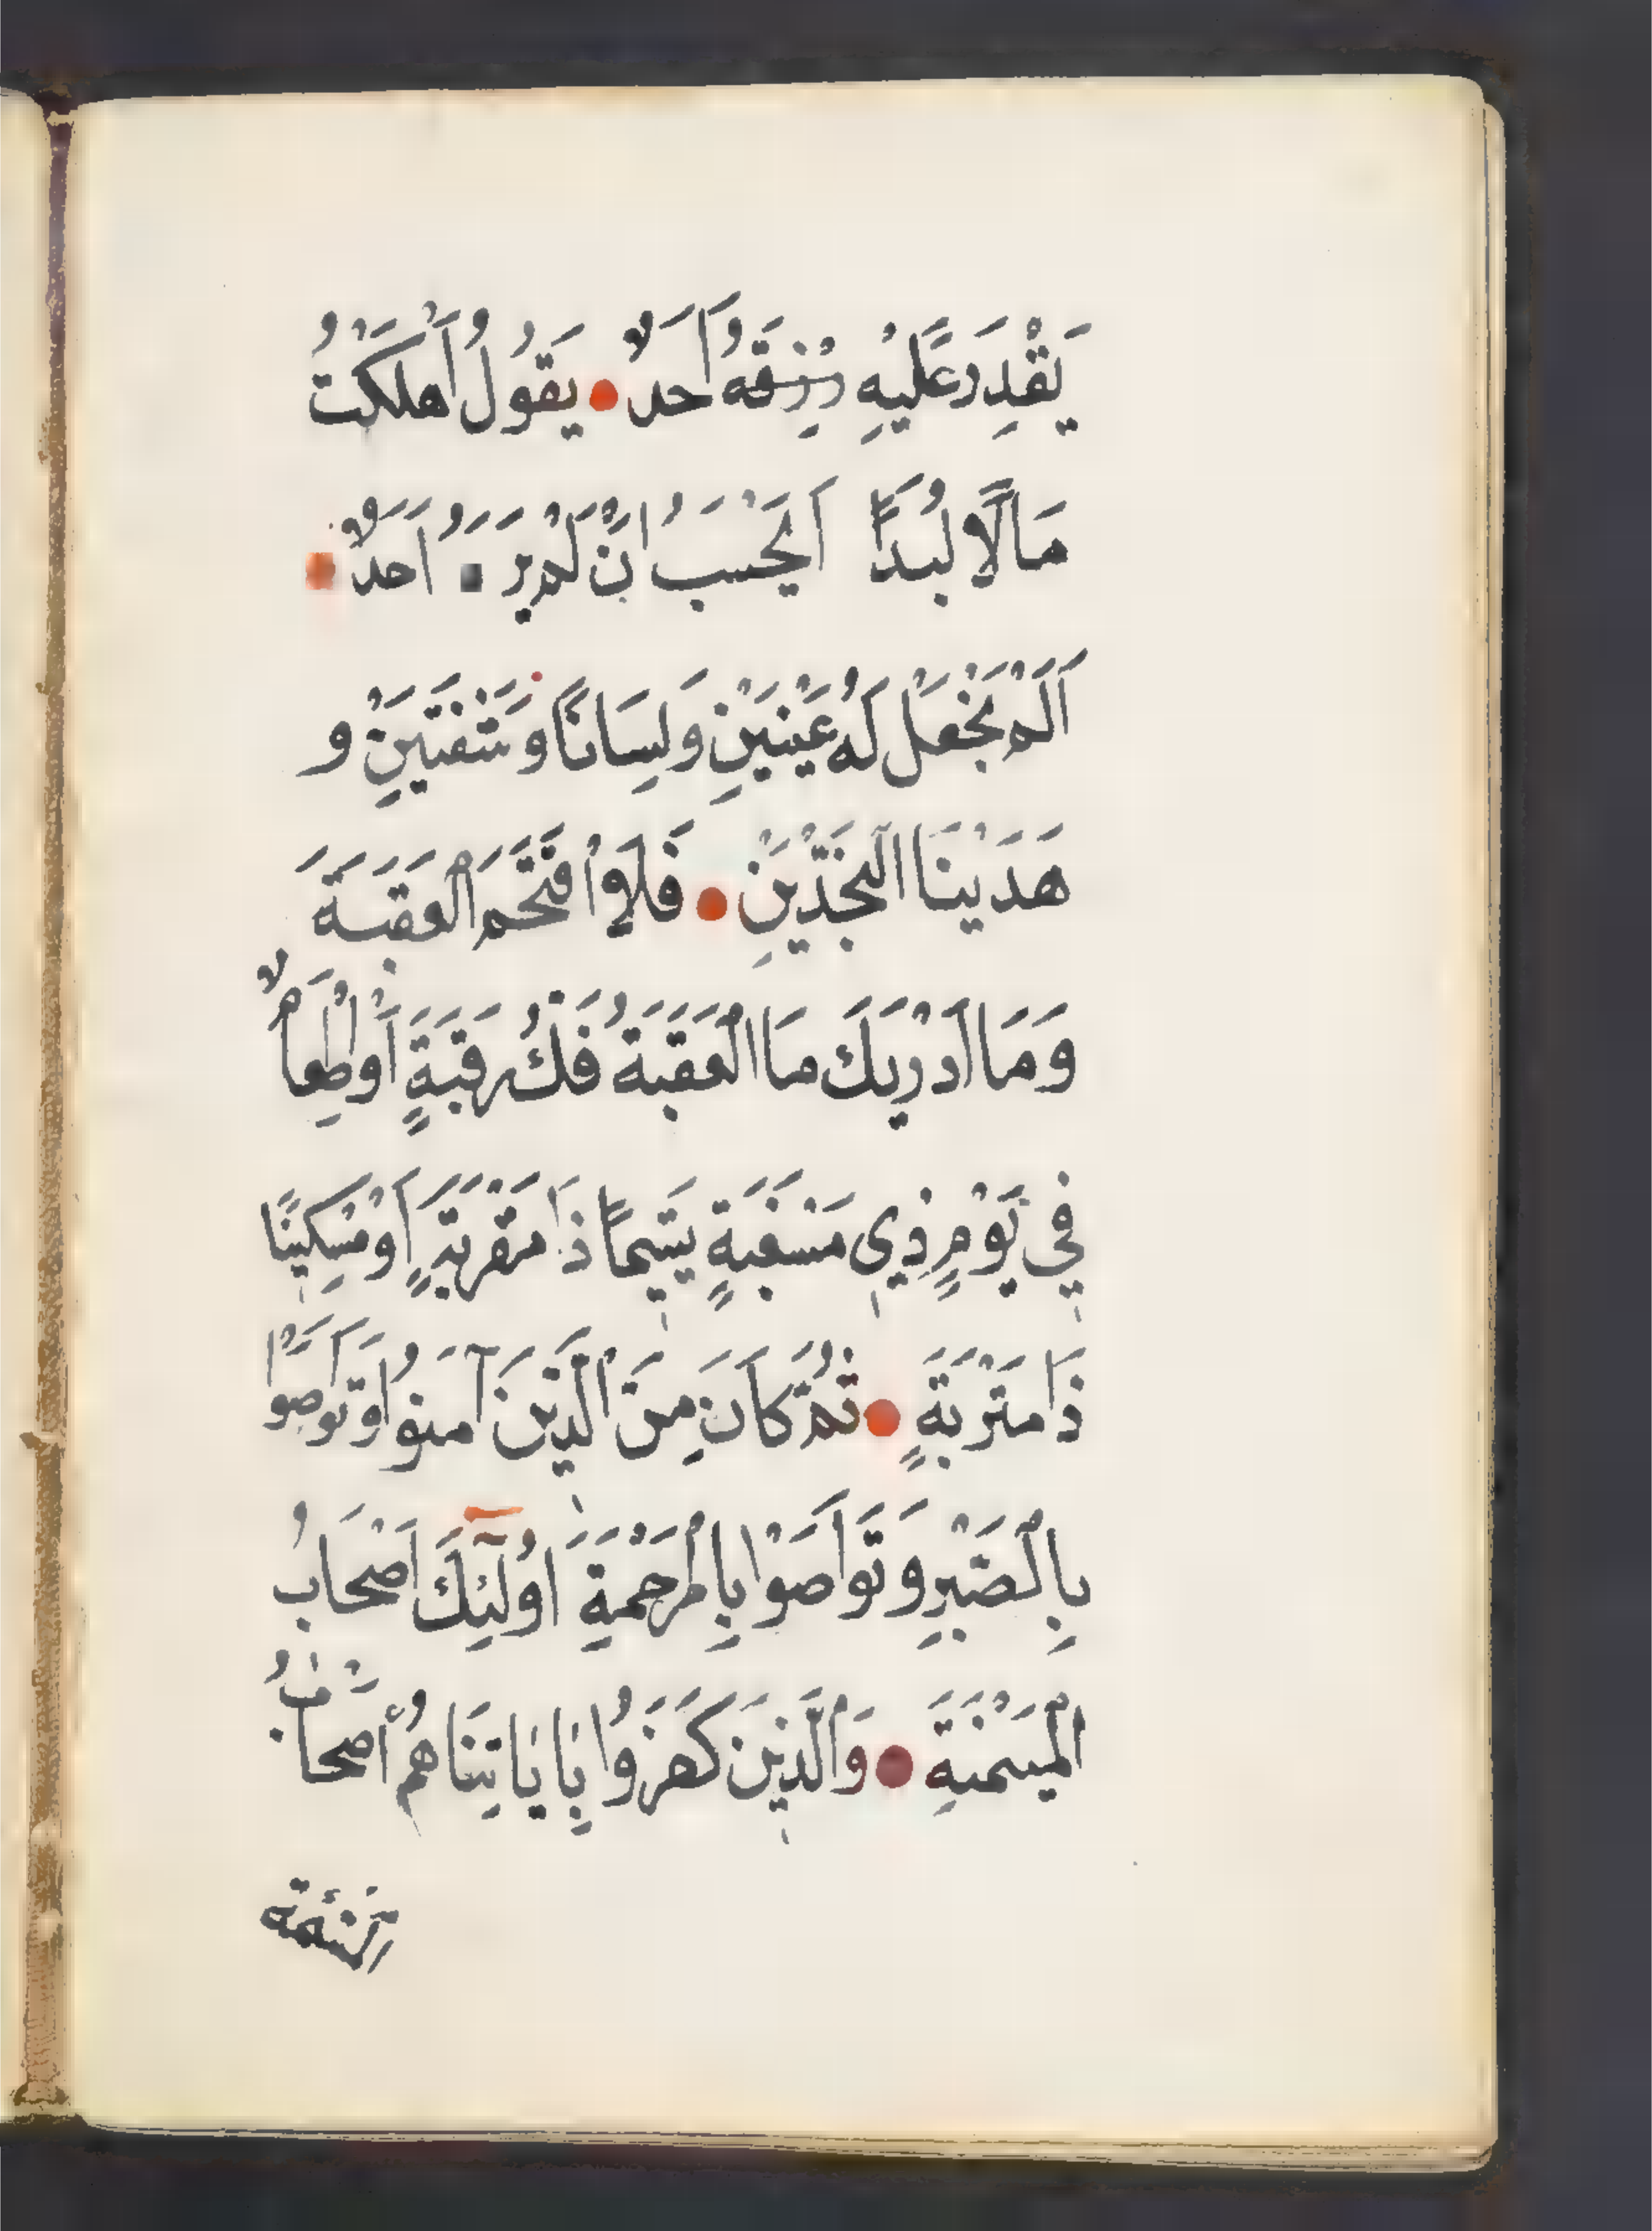 يَقْدِرَ عَلَيْهِ رِزْقَهُ اَحَدٌ يَقُولُ اَهْلَكْتُ
مَالًا لُبَدًا اَيَحْسَبُ اَنْ لَمْ يَرَ هُ اَحَدٌ
اَلَمْ نَجْعَلْ لَهُ عَيْنَيْنِ وَلِسَانًا وَشَفَتَيْنِ وَ
هَدَيْنَا النَّجْدَيْنِ فَلَا اقْتَحَمَ الْعَقَبَةَ
وَمَا اَدْرٰيكَ مَا الْعَقَبَةُ فَكُّ رَقَبَةٍ اَوْ اِطْعَامٌ
فِي يَوْمٍ ذِي مَسْغَبَةٍ يَتِيمًا ذَا مَقْرَبَةٍ اَوْ مِسْكِينًا
ذَا مَتْرَبَةٍ ثُمَّ كَانَ مِنَ الَّذِينَ آمَنُوا وَتَوَاصَوْا
بِالصَّبْرِ وَتَوَاصَوْا بِالْمَرْحَمَةِ اُولٰٓئِكَ اَصْحَابُ
الْمَيْمَنَةِ وَالَّذِينَ كَفَرُوا بِاٰيَاتِنَا هُمْ أَصْحَابُ